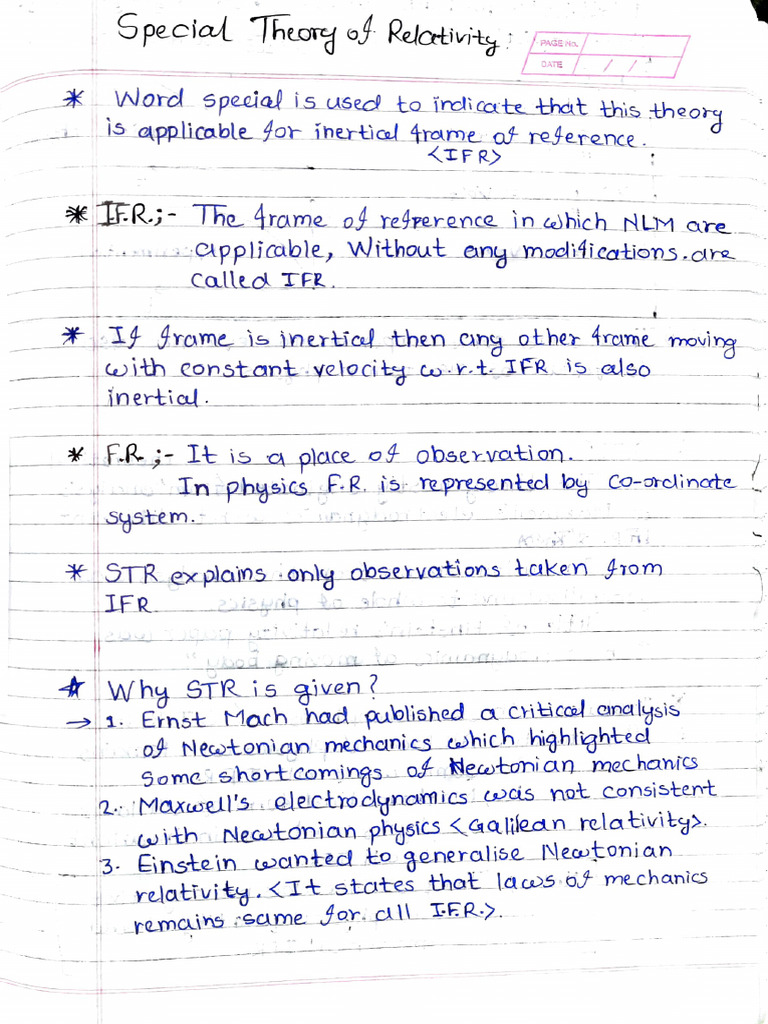 Special Theory of Relativity:
PAGE No.
DATE / /
* Word special is used to indicate that this theory
is applicable for inertial frame of reference.
<IFR>
* I.F.R.;- The frame of reference in which NLM are
applicable, Without any modifications are
called IFR.
* If frame is inertial then any other frame moving
with constant velocity w.r.t. IFR is also
inertial.
* F.R ;- It is a place of observation.
In physics F.R. is represented by co-ordinate
system.
* STR explains only observations taken from
IFR.
* Why STR is given?
→ 1. Ernst Mach had published a critical analysis
of Newtonian mechanics which highlighted
some shortcomings of Newtonian mechanics
2. Maxwell's electrodynamics was not consistent
with Newtonian physics <Galilean relativity>.
3. Einstein wanted to generalise Newtonian
relativity. <It states that laws of mechanics
remains same for all I.F.R.>.